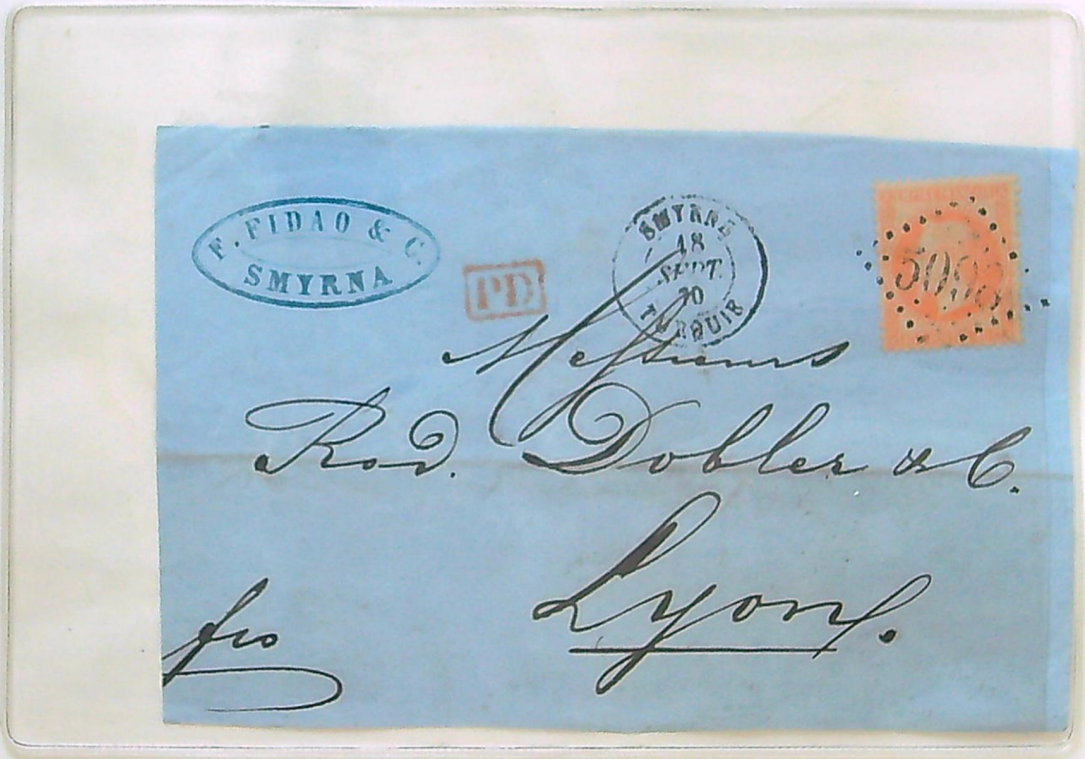 F. FIDAO & C.
SMYRNA
PD
SMYRNE
18
SEPT.
70
TURQUIE
5098
Messieurs
Rod. Dobler & C.
Lyon.
fco